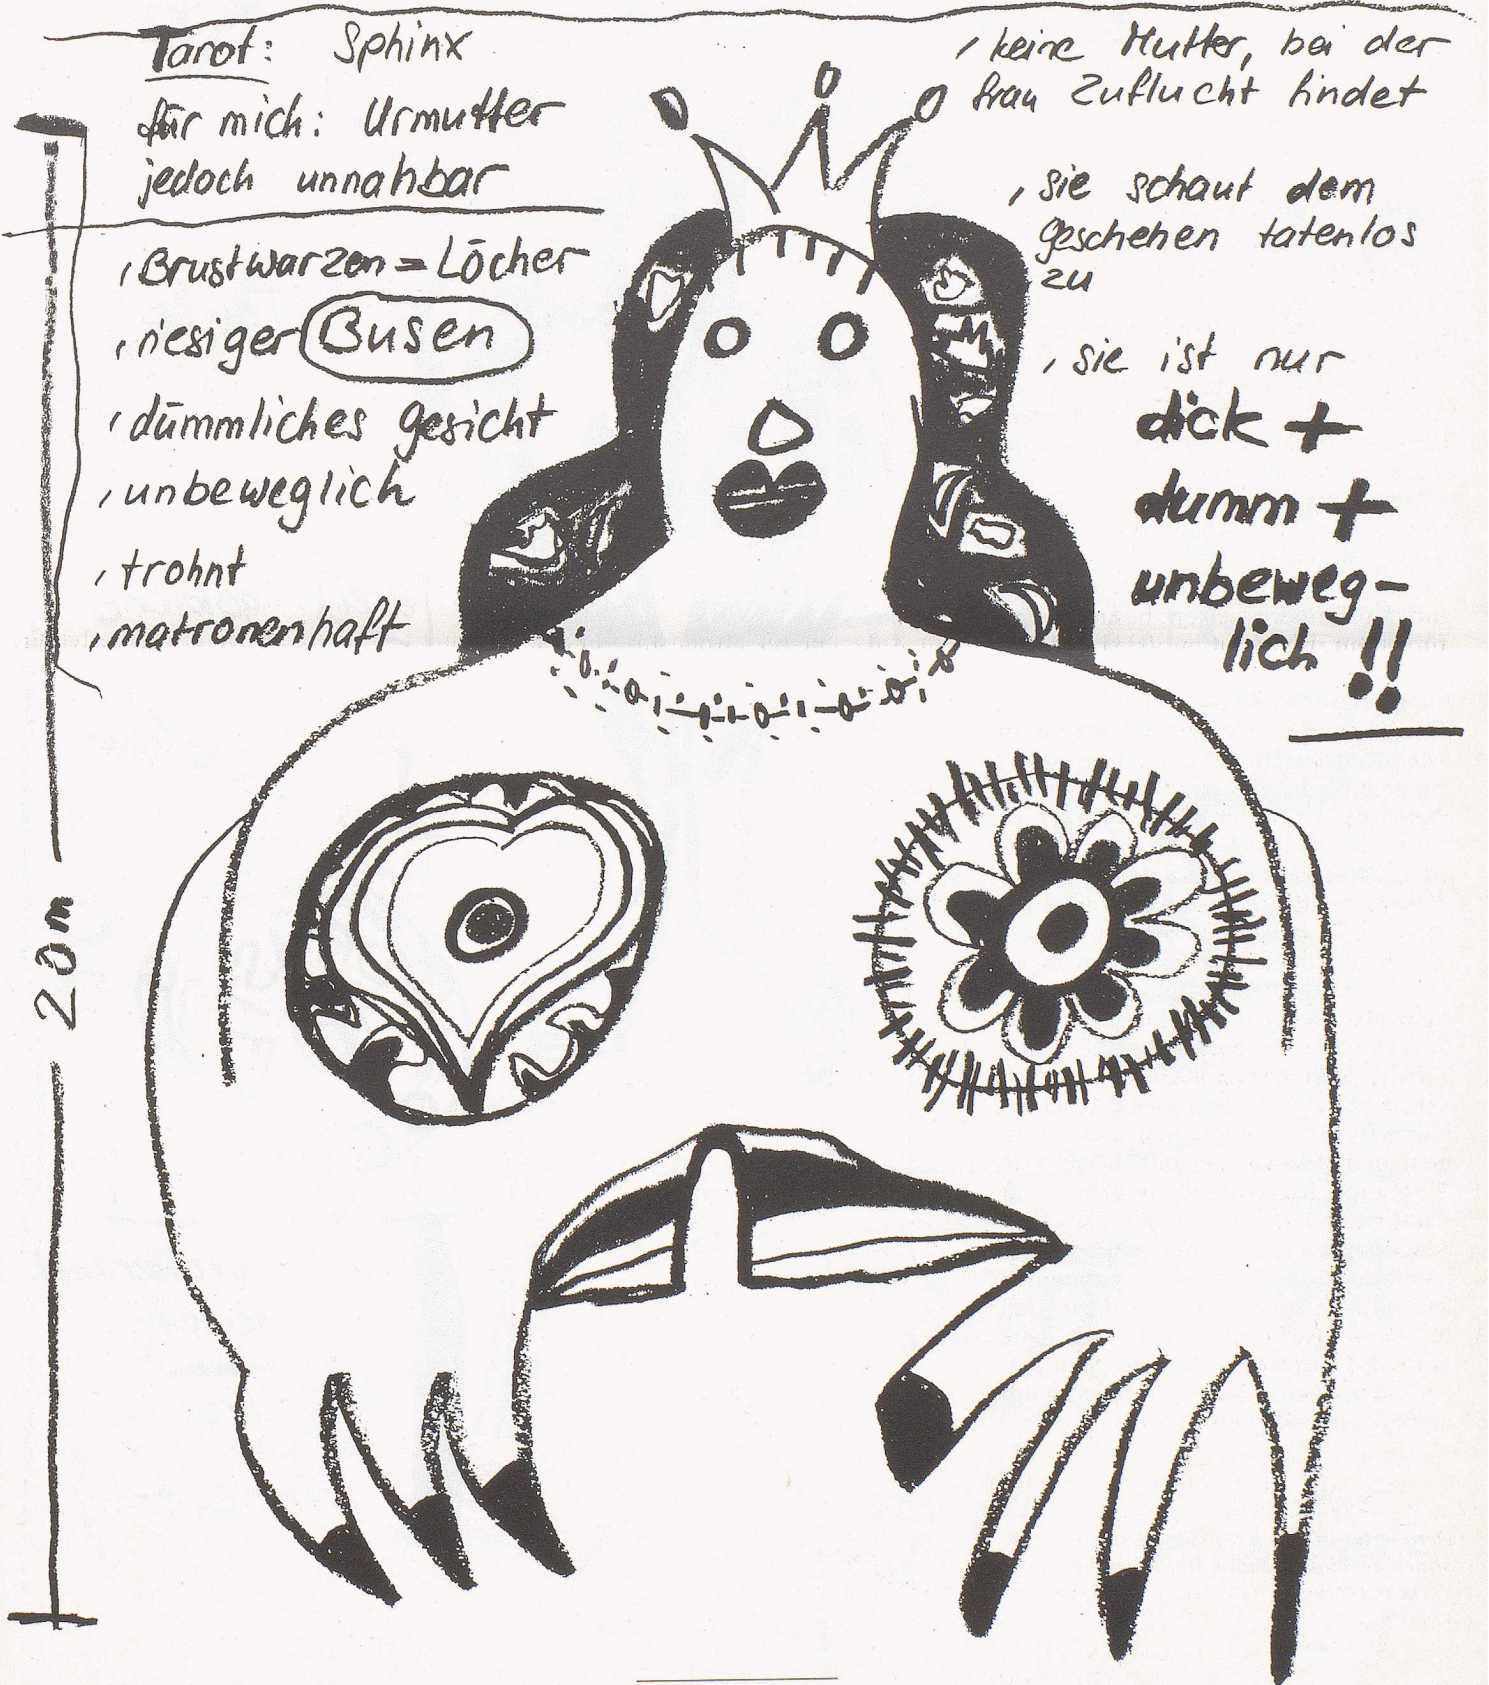 Tarot: Sphinx
für mich: Urmutter
jedoch unnahbar
, Brustwarzen = Löcher
, riesiger Busen
, dümmliches gesicht
, unbeweglich
, trohnt
, matronenhaft
20m
, keine Mutter, bei der
frau Zuflucht findet
, sie schaut dem
geschehen tatenlos
zu
, sie ist nur
dick +
dumm +
unbeweg-
lich !!